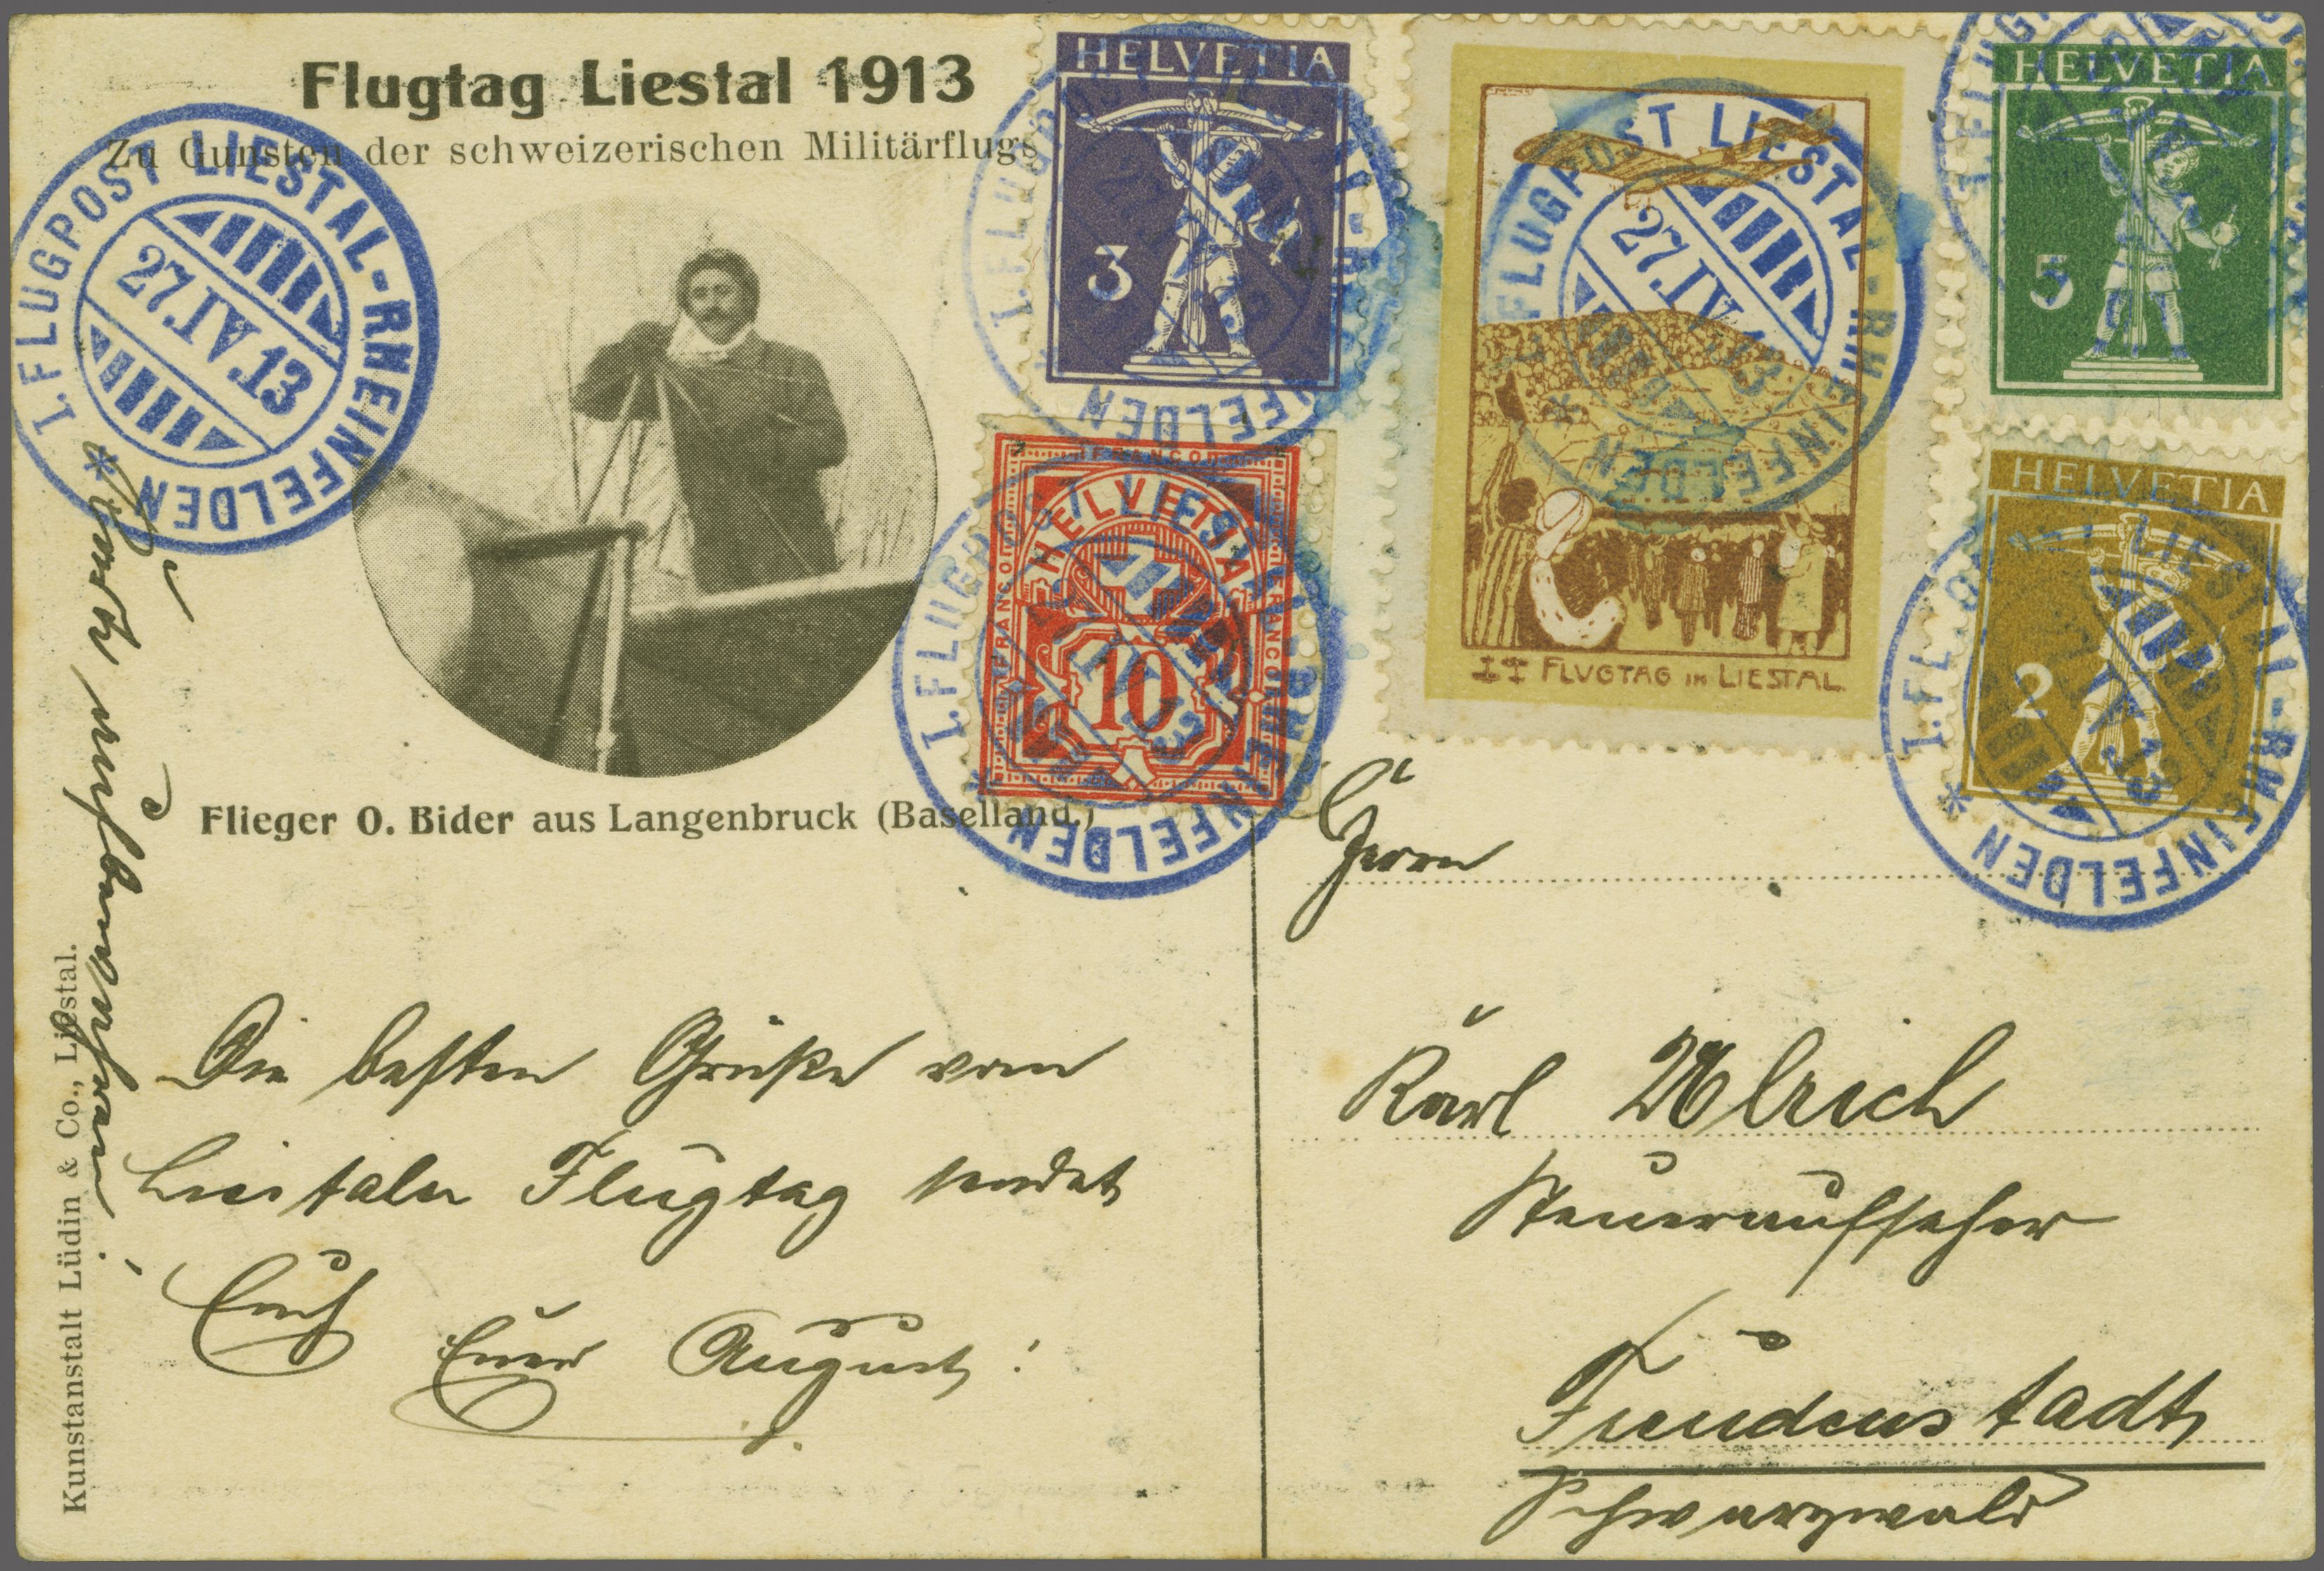 Flugtag Liestal 1913
Zu Gunsten der schweizerischen Militärflugs
I. FLUGPOST LIESTAL-RHEINFELDEN *
27.IV.13
Flieger O. Bider aus Langenbruck (Baselland.)
Kunstanstalt Lüdin & Co., Liestal.
Die besten Grüße vom
Liestaler Flugtag sendet
Euch
Euer August!
HELVETIA
3
I. FLUGPOST LIESTAL-RHEINFELDEN
FRANCO
HELVETIA
FRANCO
FRANCO
10
I. FLUGPOST LIESTAL-RHEINFELDEN *
27.IV.13
FLUGPOST LIESTAL-RHEINFELDEN *
27.IV.13
II FLUGTAG IN LIESTAL
HELVETIA
5
I. FLUG
HELVETIA
2
I. FL LIESTAL-RHEINFELDEN *
13
Herrn
Karl Ulrich
Steueraufseher
Freudenstadt
Schwarzwald